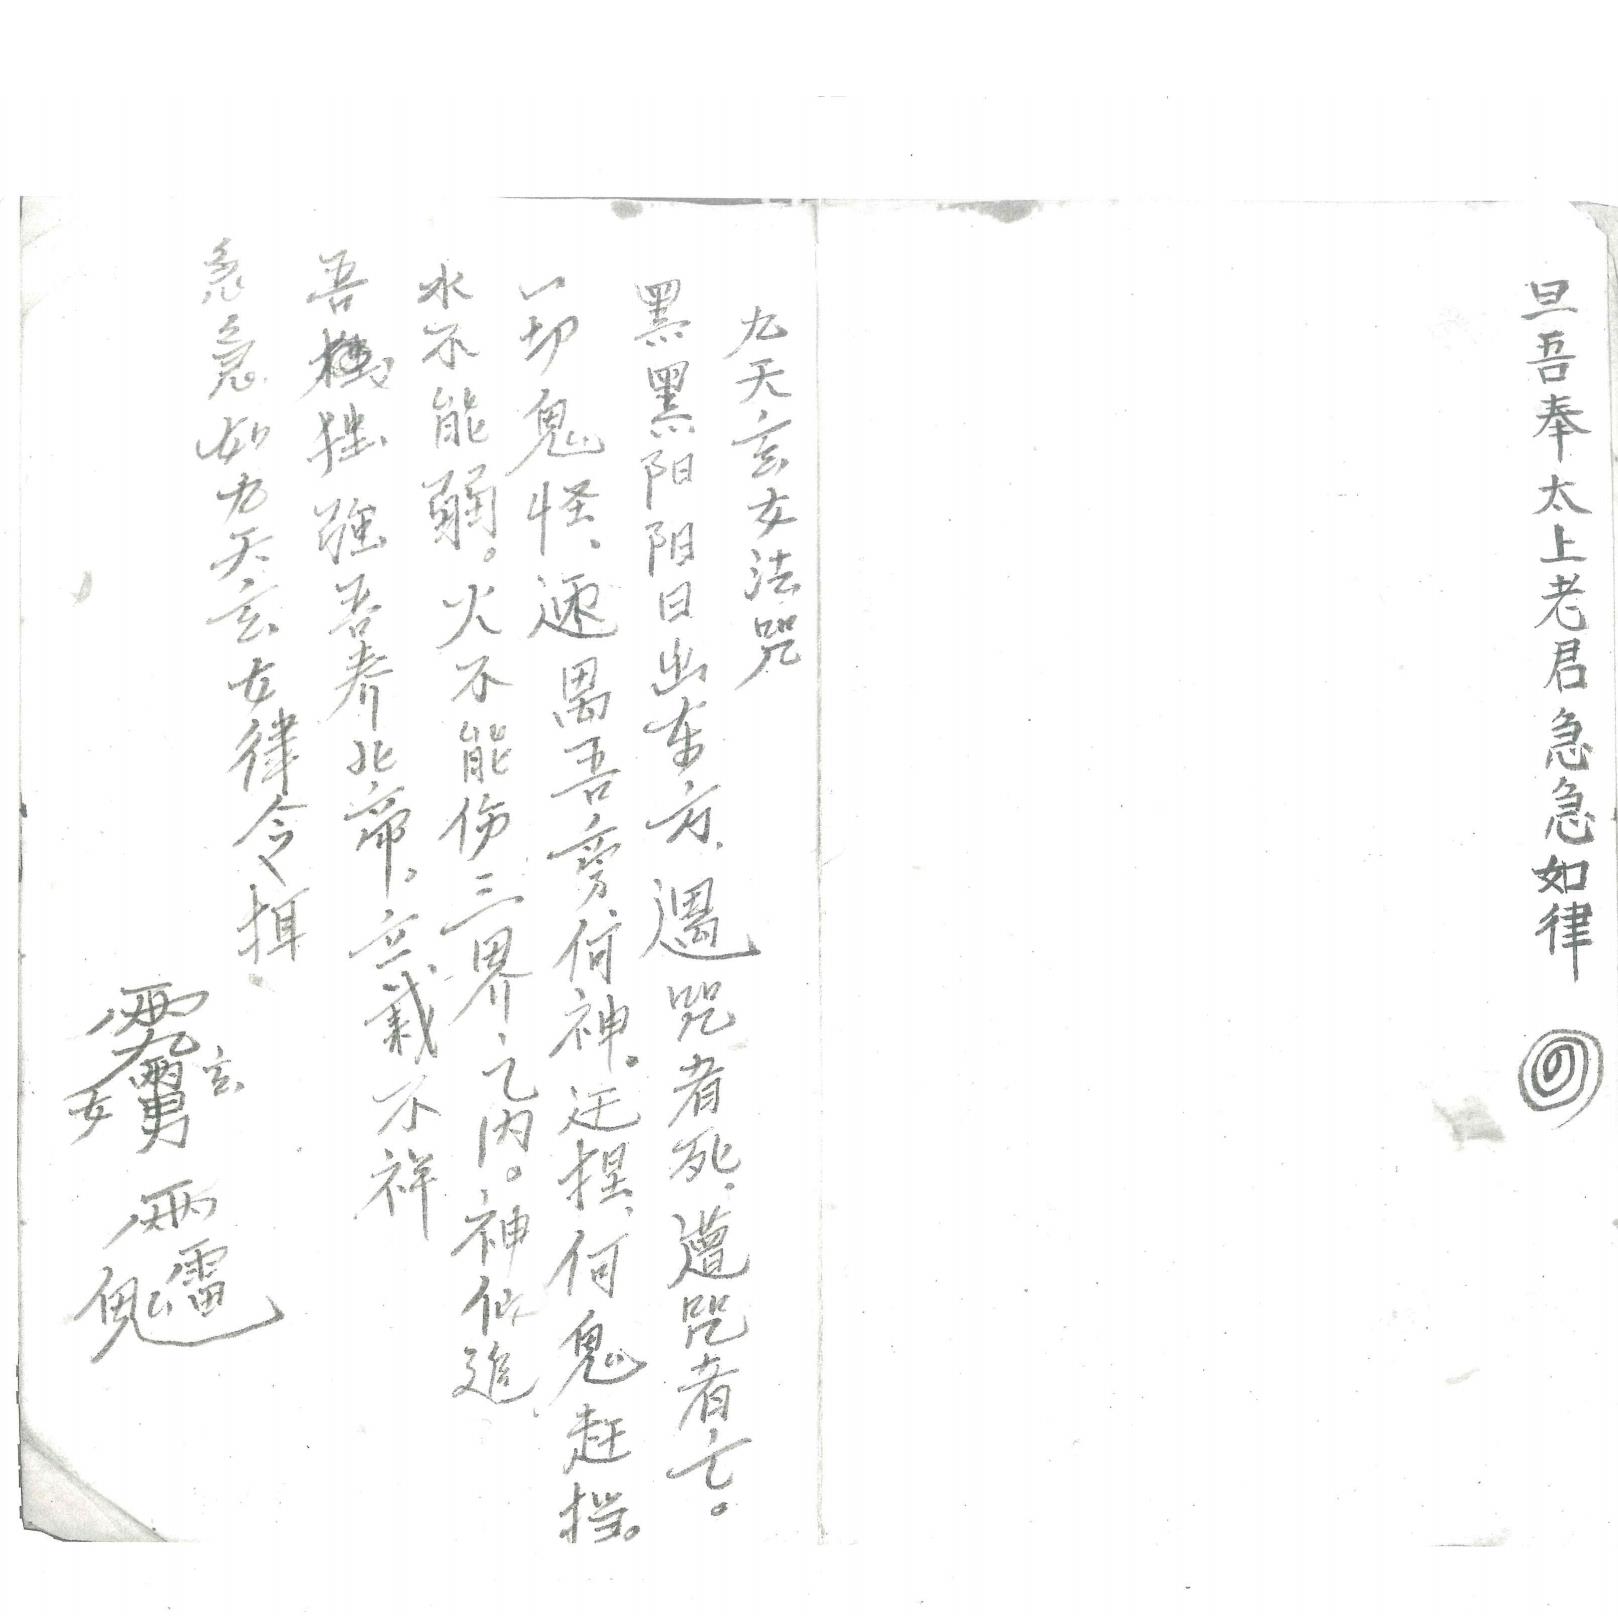 旦吾奉太上老君急急如律
九天玄女法咒
黑黑阳阳日出东方、遇咒者死、遭咒者亡。
一切鬼怪、逐离吾旁何神。近捏、何鬼赶挡。
水不能溺。火不能伤三界之内。神仙追
吾 独强吾奉北帝。立裁不祥
急急如九天玄女律令揖
玄
女